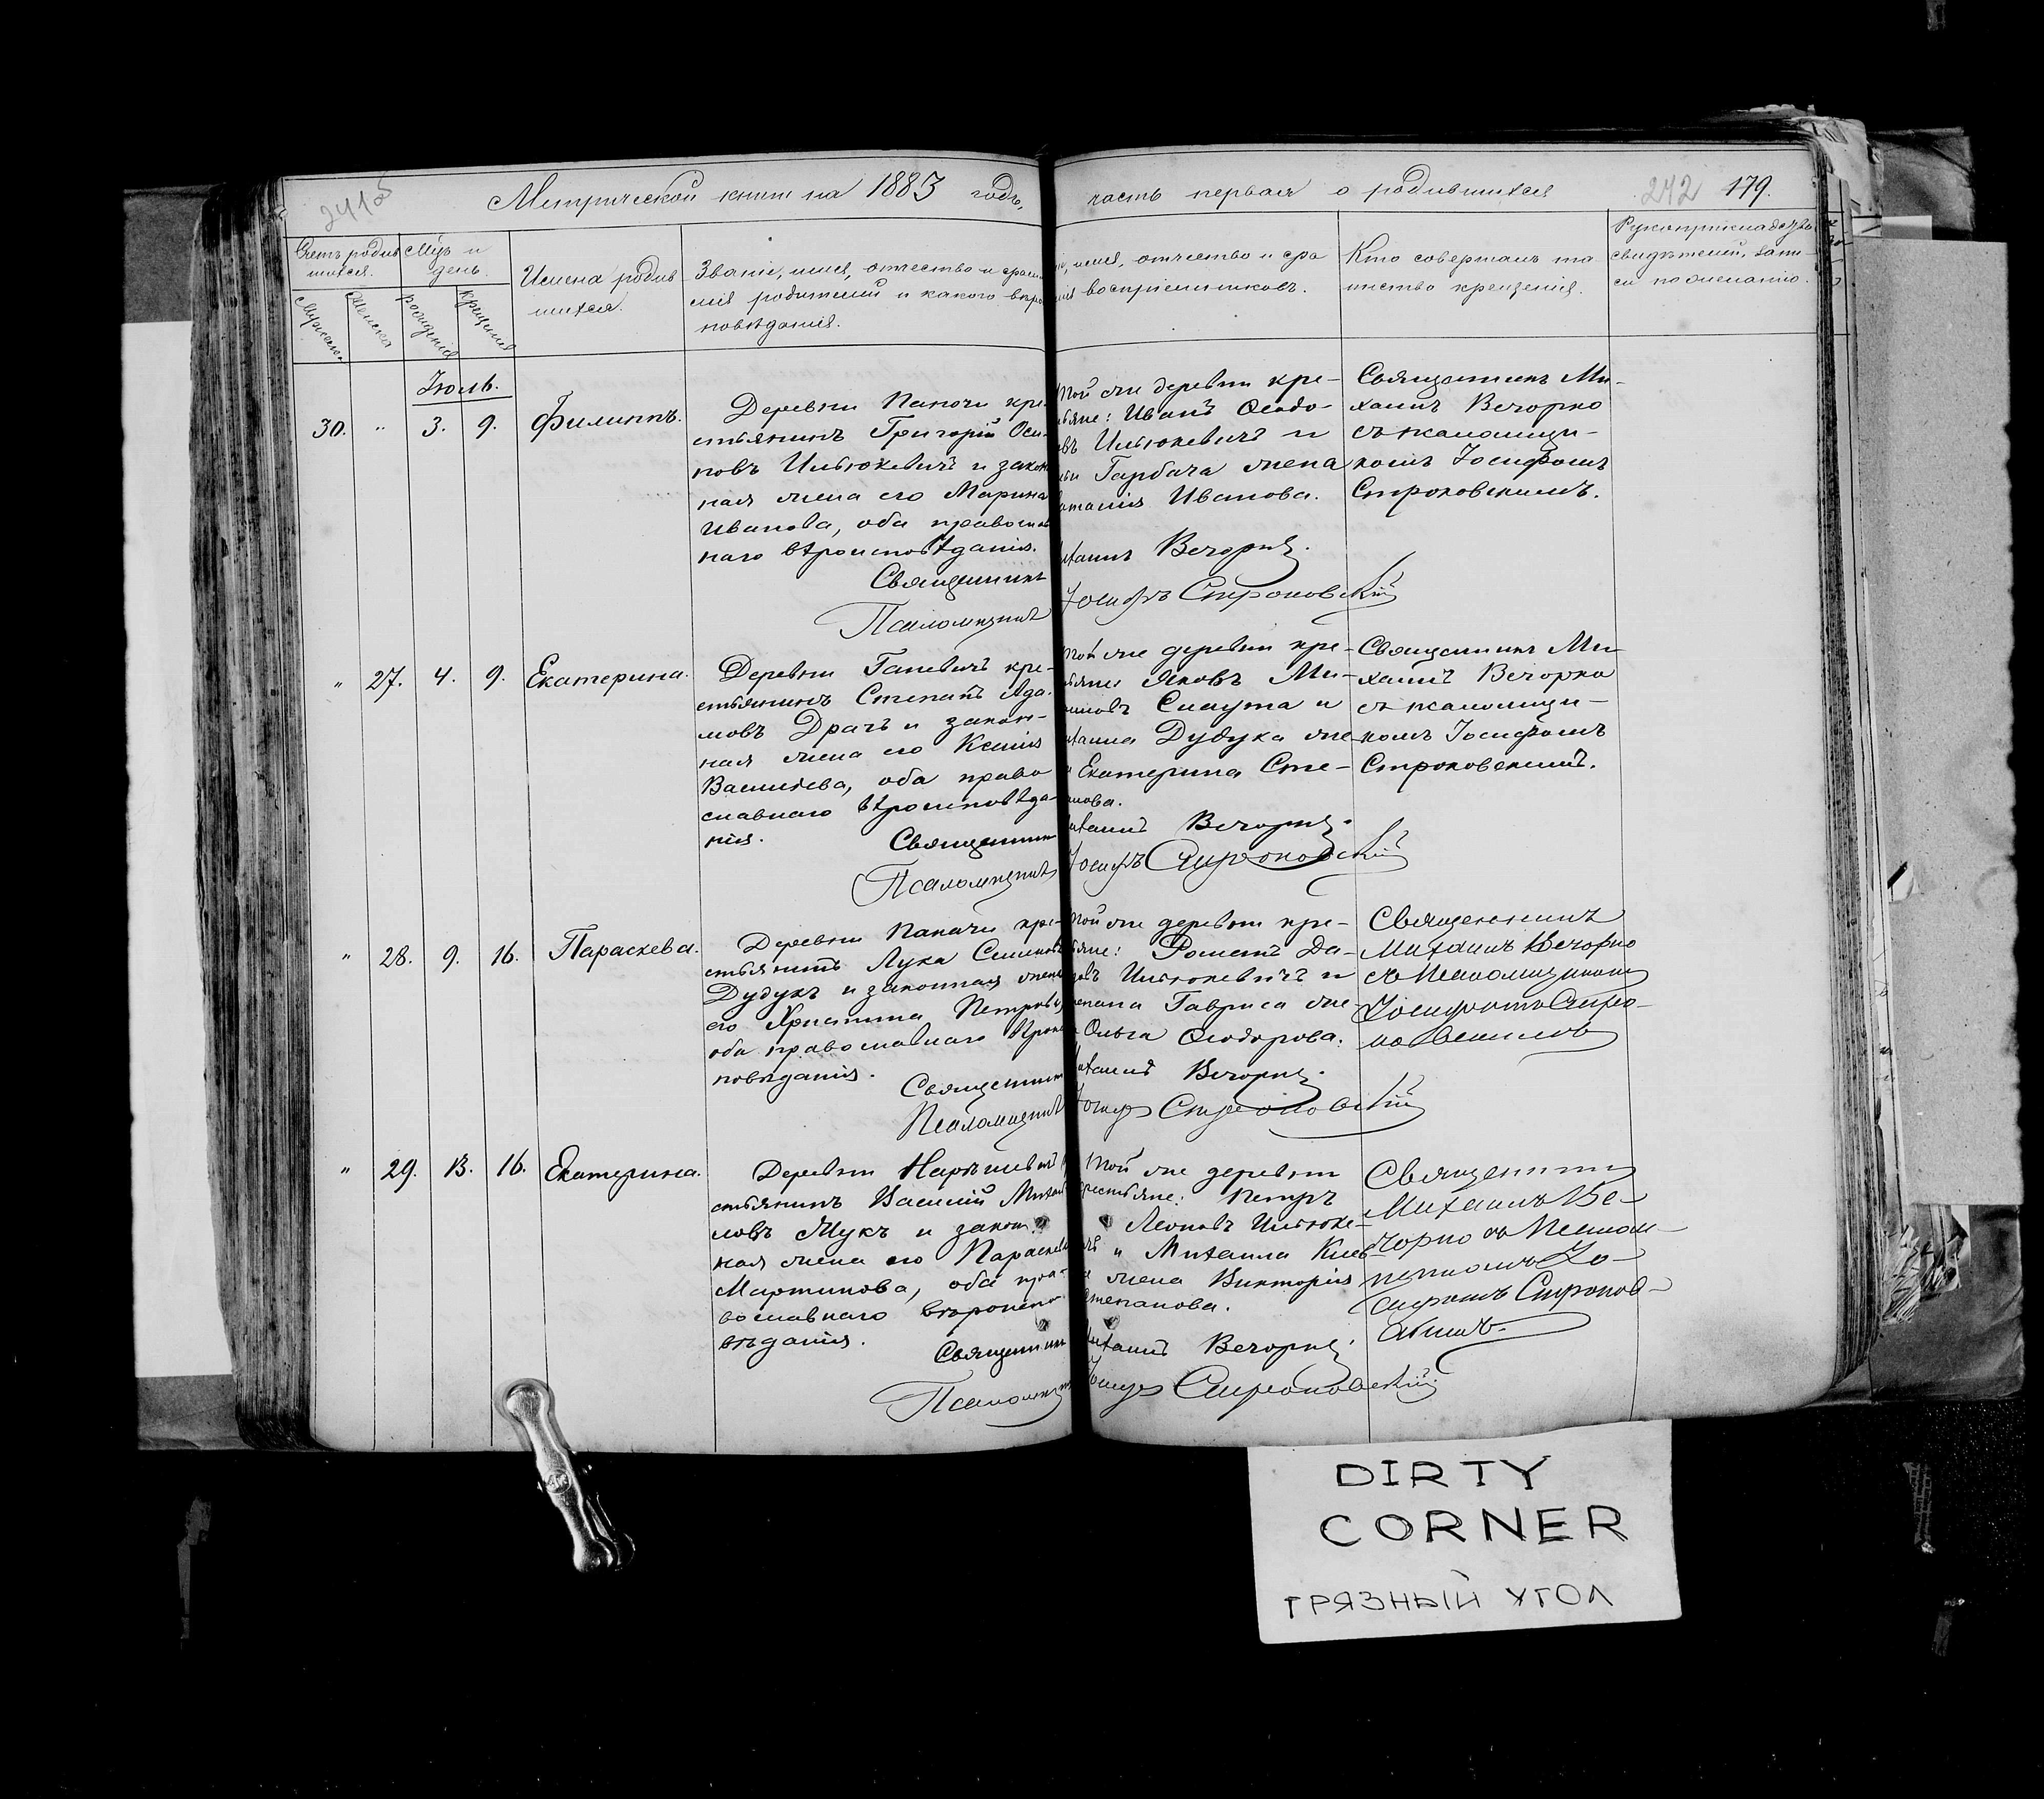 241об
Метрической книги на 1883 годъ,
часть первая о родившихся
242 179.
Счетъ родив-
шихся.
Мѣсяцъ и
день.
Мужска.
Женска
рожденія
крещенія
Имена родив-
шихся.
Званіе, имя, отчество и фами-
лія родителей и какого вѣро
исповѣданія.
имя, отчество и фа
воспріемниковъ.
Кто совершалъ та
инство крещенія.
Рукоприкладство
свидѣтелей, запи-
си по желанію.
Іюль.
30. " 3. 9. Филиппъ.
Деревни Папочи кре-
стьянинъ Григорій Оси-
повъ Ильюкевичъ и закон
ная жена его Марина
Иванова, оба православ
наго вѣроисповѣданія.
Священникъ
Псаломщикъ
той же деревни кре-
стьяне: Иванъ Ѳеодо-
овъ Ильюкевичъ и
Гарбача жена
Наталія Иванова.
Михаилъ Вечорко.
Іосифъ Строковскій
Священникъ Ми-
хаилъ Вечорко
съ псаломщи-
комъ Іосифомъ
Строковскимъ.
" 27. 4. 9. Екатерина.
Деревни Ганевичъ кре-
стьянинъ Степанъ Ада-
мовъ Драчъ и закон-
ная жена его Ксенія
Васильева, оба право
славнаго вѣроисповѣда-
нія.
Священник
Псаломщикъ
той же деревни кре-
стьяне Яковъ Ми-
Смута и
Михаила Дудука же-
Екатерина Сте-
панова.
Михаилъ Вечорко.
Іосифъ Строковскій
Священникъ Ми-
хаилъ Вечорко
съ псаломщи-
комъ Іосифомъ
Строковскимъ.
" 28. 9. 16. Параскева.
Деревни Папачи кре-
стьянинъ Лука Семеновъ
Дудукъ и законная жена
его Христина Петрова
оба православнаго
повѣданія.
Священник
Псаломщикъ
той же деревни кре-
стьяне: Романъ Да-
Ильюкевичъ и
Степана Гавриса же-
Ольга Ѳеодорова.
Михаилъ Вечорко.
Іосифъ Строковскій
Священникъ
Михаилъ Вечорко
съ Псаломщикомъ
Іосифомъ Стро-
ковскимъ
" 29. 13. 16. Екатерина.
Деревни
стьянинъ Василій Михаи
ловъ Жукъ и закон
ная жена его Параскева
Мартинова, оба пра-
вославнаго вѣроиспо
вѣданія.
Священник
Псаломщик
той же деревни
крестьяне: Петръ
Леоновъ Ильюке-
вичъ и Михаила
жена Викторія
Степанова.
Михаилъ Вечорко.
Іосифъ Строковскій
Священникъ
Михаилъ Ве-
чорко съ Псалом-
щикомъ Іо-
сифомъ Строков-
скимъ.
DIRTY
CORNER
ГРЯЗНЫЙ УГОЛ